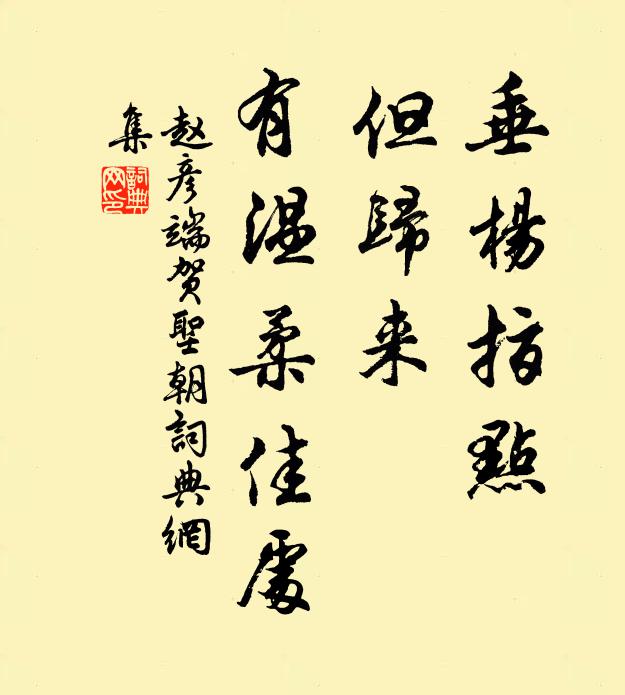 垂楊指點
但歸来
有温柔佳處
赵彦端贺聖朝詞典網
集
詞典網印